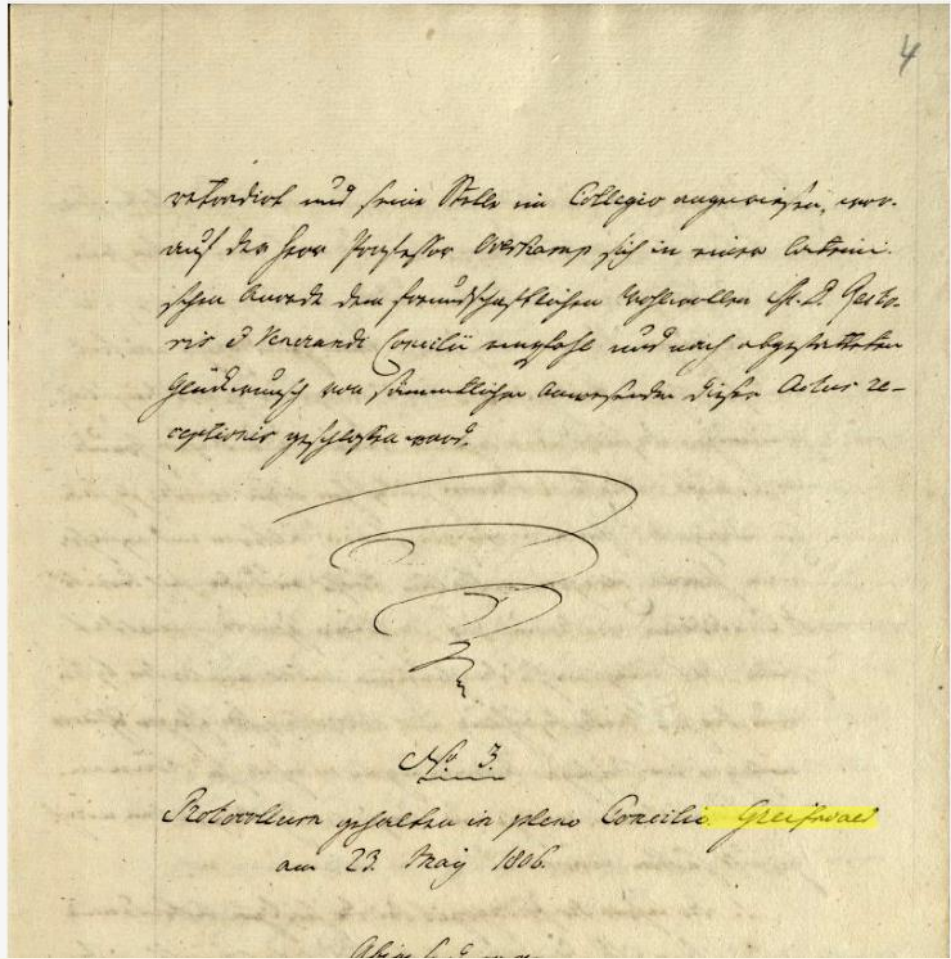 4
und seine Stelle im Collegio angewiesen, wor-
auf der Herr Professor Overkamp sich in einer lateini-
schen Anrede dem freundschaftlichen Wohlwollen M. D. Recto-
ris & Venerandi Concilii empfohl und nach abgestatteten
Glückwunsch von sämmtlichen Anwesenden dieser Actus re-
ceptionis geschlossen ward.
No 3.
Protocollum gehalten in pleno Concilio. Greifswald
am 23. May 1806.